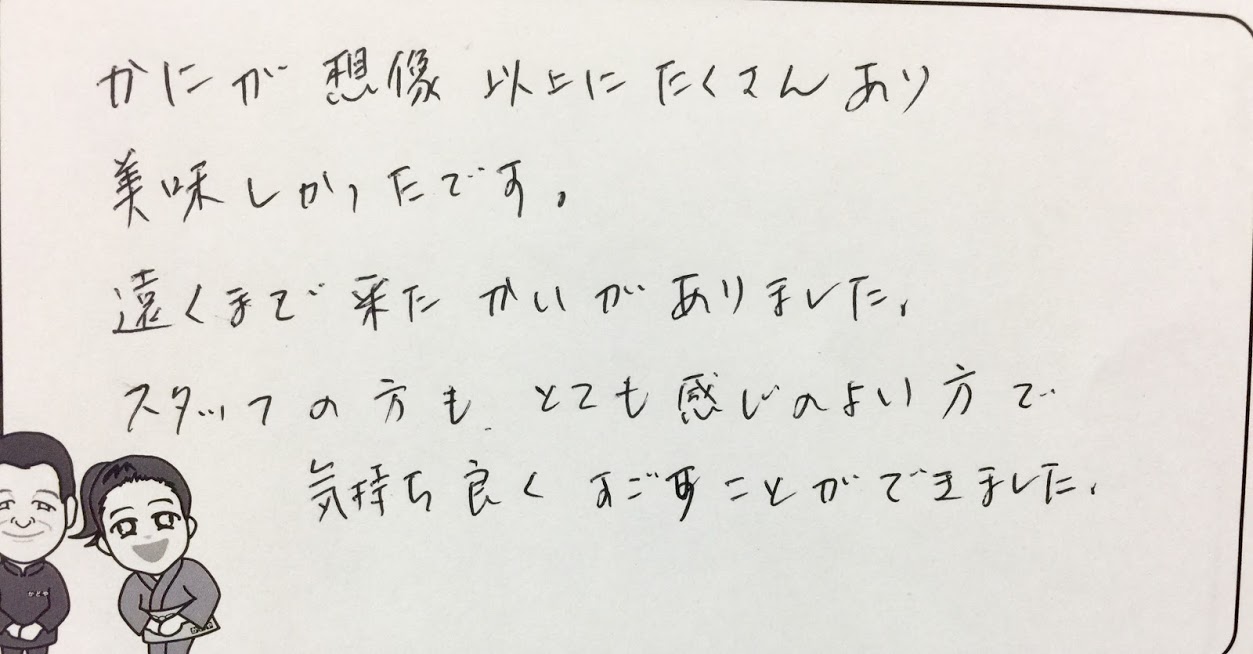 かにが想像以上にたくさんあり
美味しかったです。
遠くまで来たかいがありました。
スタッフの方も、とても感じのよい方で
気持ち良くすごすことができました。
かどや